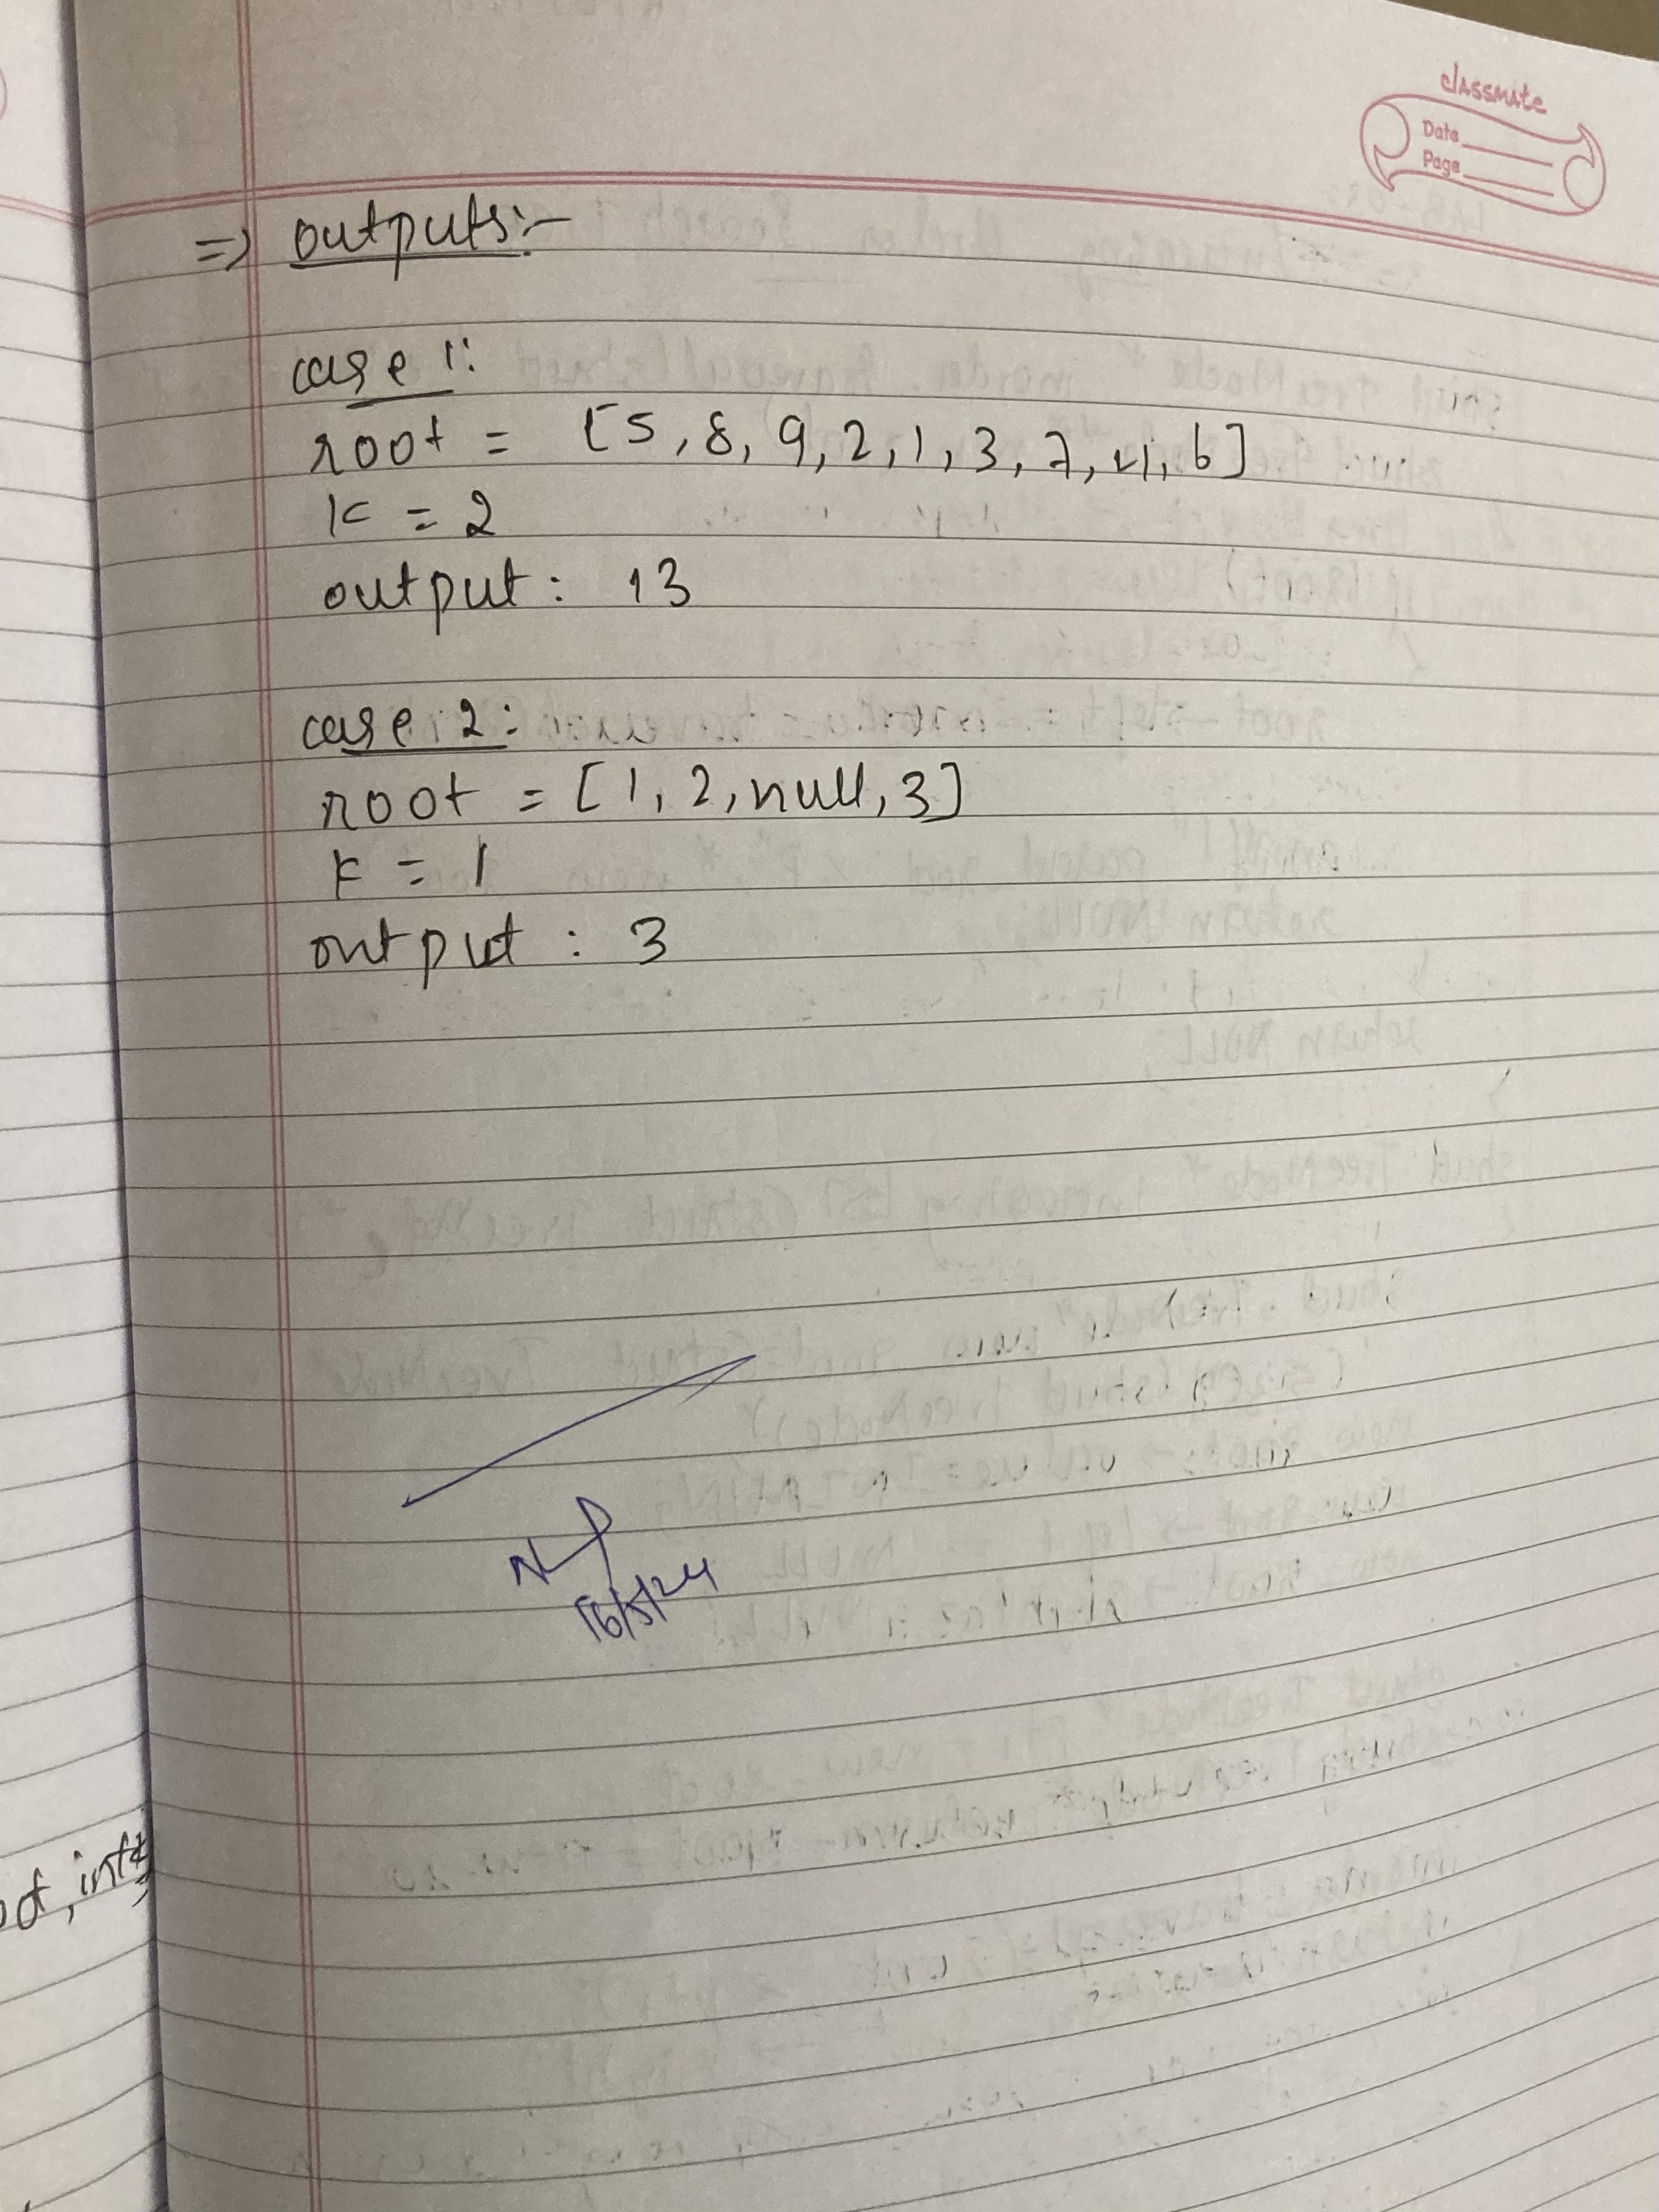 classmate
Date
Page
=> outputs:-
case 1:
root = [5, 8, 9, 2, 1, 3, 7, 4, 6]
K = 2
output : 13
case 2:
root = [1, 2, null, 3]
K = 1
output : 3
16/5/24